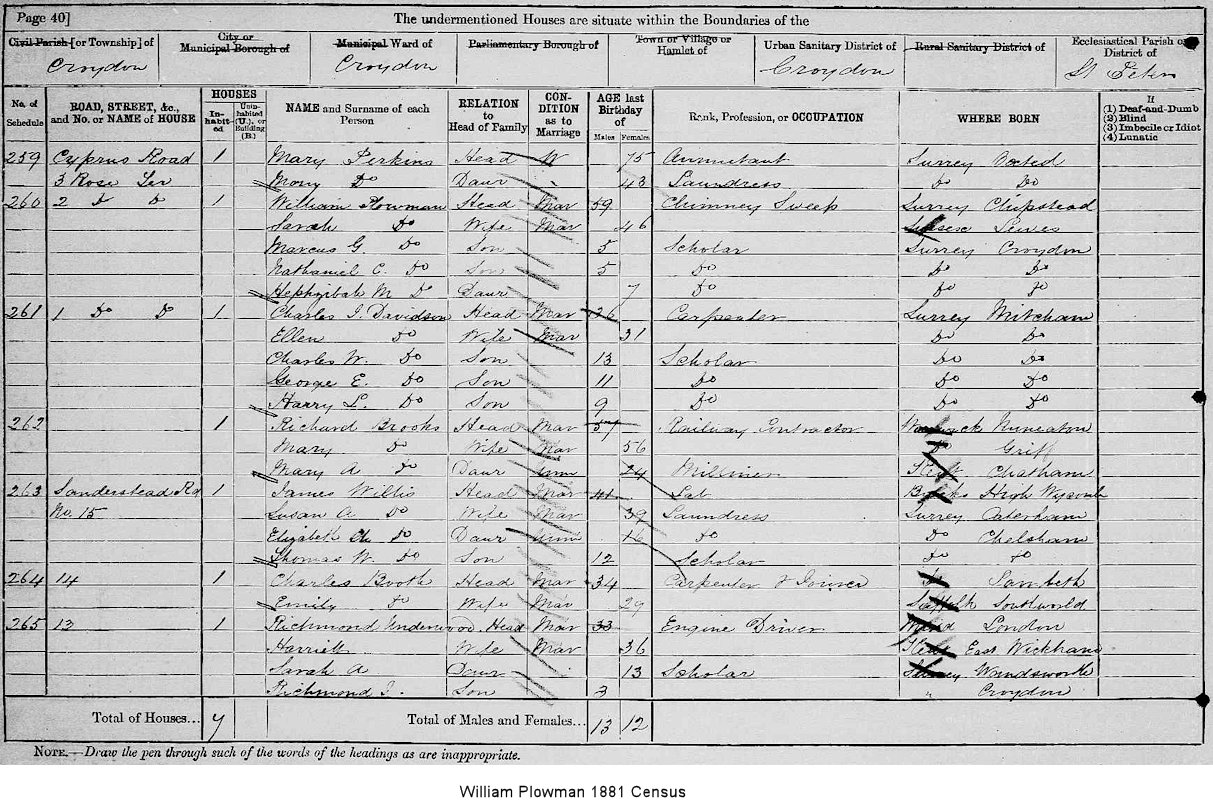 Page 40]
The undermentioned Houses are situate within the Boundaries of the
Civil Parish [or Township] of
Croydon
City or Municipal Borough of
Municipal Ward of
Croydon
Parliamentary Borough of
Town or Village or Hamlet of
Urban Sanitary District of
Croydon
Rural Sanitary District of
Ecclesiastical Parish or District of
St Peters
No. of Schedule
ROAD, STREET, &c., and No. or NAME of HOUSE
HOUSES
In-habit-ed
Unin-habited (U.), or Building (B.)
NAME and Surname of each Person
RELATION to Head of Family
CON-DITION as to Marriage
AGE last Birthday of
Males Females
Rank, Profession, or OCCUPATION
WHERE BORN
If
(1) Deaf-and-Dumb
(2) Blind
(3) Imbecile or Idiot
(4) Lunatic
259 Cyprus Road 1 Mary Perkins Head W 75 Annuitant Surrey
3 Rose Ter Mary Do Daur 43 Laundress Do Do
260 2 Do Do 1 William Plowman Head Mar 59 Chimney Sweep Surrey Chipstead
Sarah Do Wife Mar 46 Sussex Lewes
Marcus G. Do Son 5 Scholar Surrey Croydon
Nathaniel C. Do Son 5 Do Do Do
Hephzibah M Do Daur 7 Do Do Do
261 1 Do Do 1 Charles J. Davidson Head Mar 36 Carpenter Surrey Mitcham
Ellen Do Wife Mar 31 Do Do
Charles W. Do Son 13 Scholar Do Do
George E. Do Son 11 Do Do Do
Harry L. Do Son 9 Do Do Do
262 1 Richard Brooks Head Mar 57 Railway Contractor Warwick Nuneaton
Mary Do Wife Mar 56 Do Griff
Mary A Do Daur Unm 24 Milliner Kent Chatham
263 Sanderstead Rd 1 James Willis Head Mar 41 Lab Bucks High Wycomb
No. 15 Susan A Do Wife Mar 39 Laundress Surrey Caterham
Elizabeth Do Daur Unm 16 Do Do Chelsham
Thomas W. Do Son 12 Scholar Do Do
264 14 1 Charles Booth Head Mar 34 Carpenter & Joiner Do Lambeth
Emily Do Wife Mar 29 Suffolk Southwold
265 13 1 Richmond Underwood Head Mar 33 Engine Driver London
Harriett Wife Mar 36 Kent East Wickham
Sarah A Daur 13 Scholar Surrey Wandsworth
Richmond J. Son 3 " Croydon
Total of Houses... 7 Total of Males and Females... 13 12
NOTE.—Draw the pen through such of the words of the headings as are inappropriate.
William Plowman 1881 Census